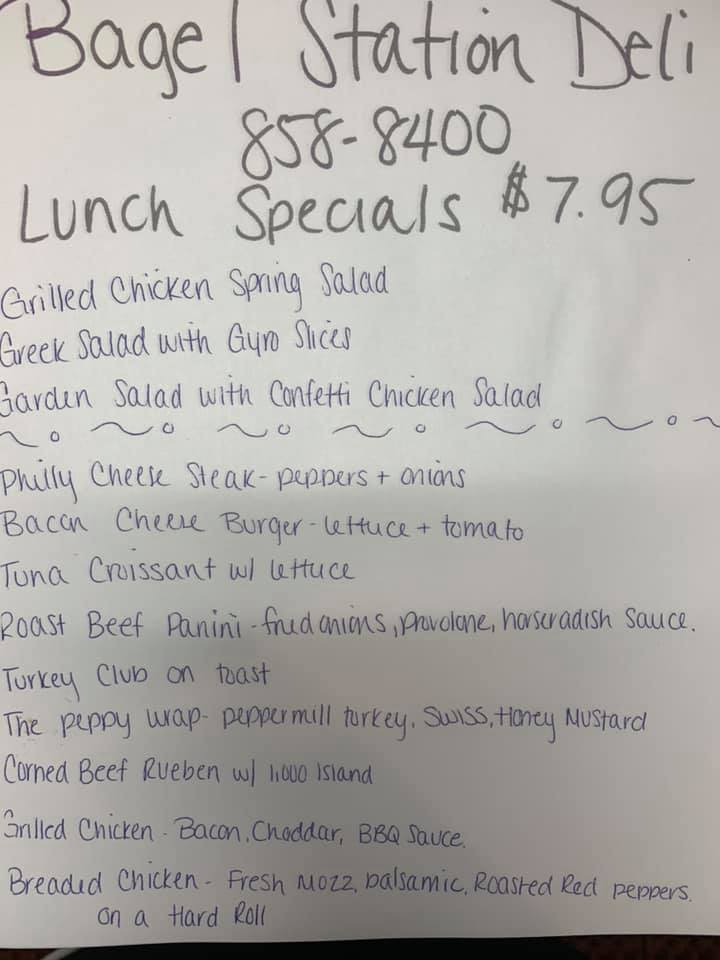 Bagel Station Deli
858-8400
Lunch Specials $7.95
Grilled Chicken Spring Salad
Greek Salad with Gyro Slices
Garden Salad with Confetti Chicken Salad
Philly Cheese Steak - peppers + onions
Bacon Cheese Burger - lettuce + tomato
Tuna Croissant w/ lettuce
Roast Beef Panini - fried onions, provolone, horseradish sauce.
Turkey Club on toast
The peppy wrap - peppermill turkey, Swiss, Honey Mustard
Corned Beef Rueben w/ 1,000 Island
Grilled Chicken - Bacon, Cheddar, BBQ Sauce.
Breaded Chicken - Fresh Mozz, balsamic, Roasted Red peppers.
on a Hard Roll